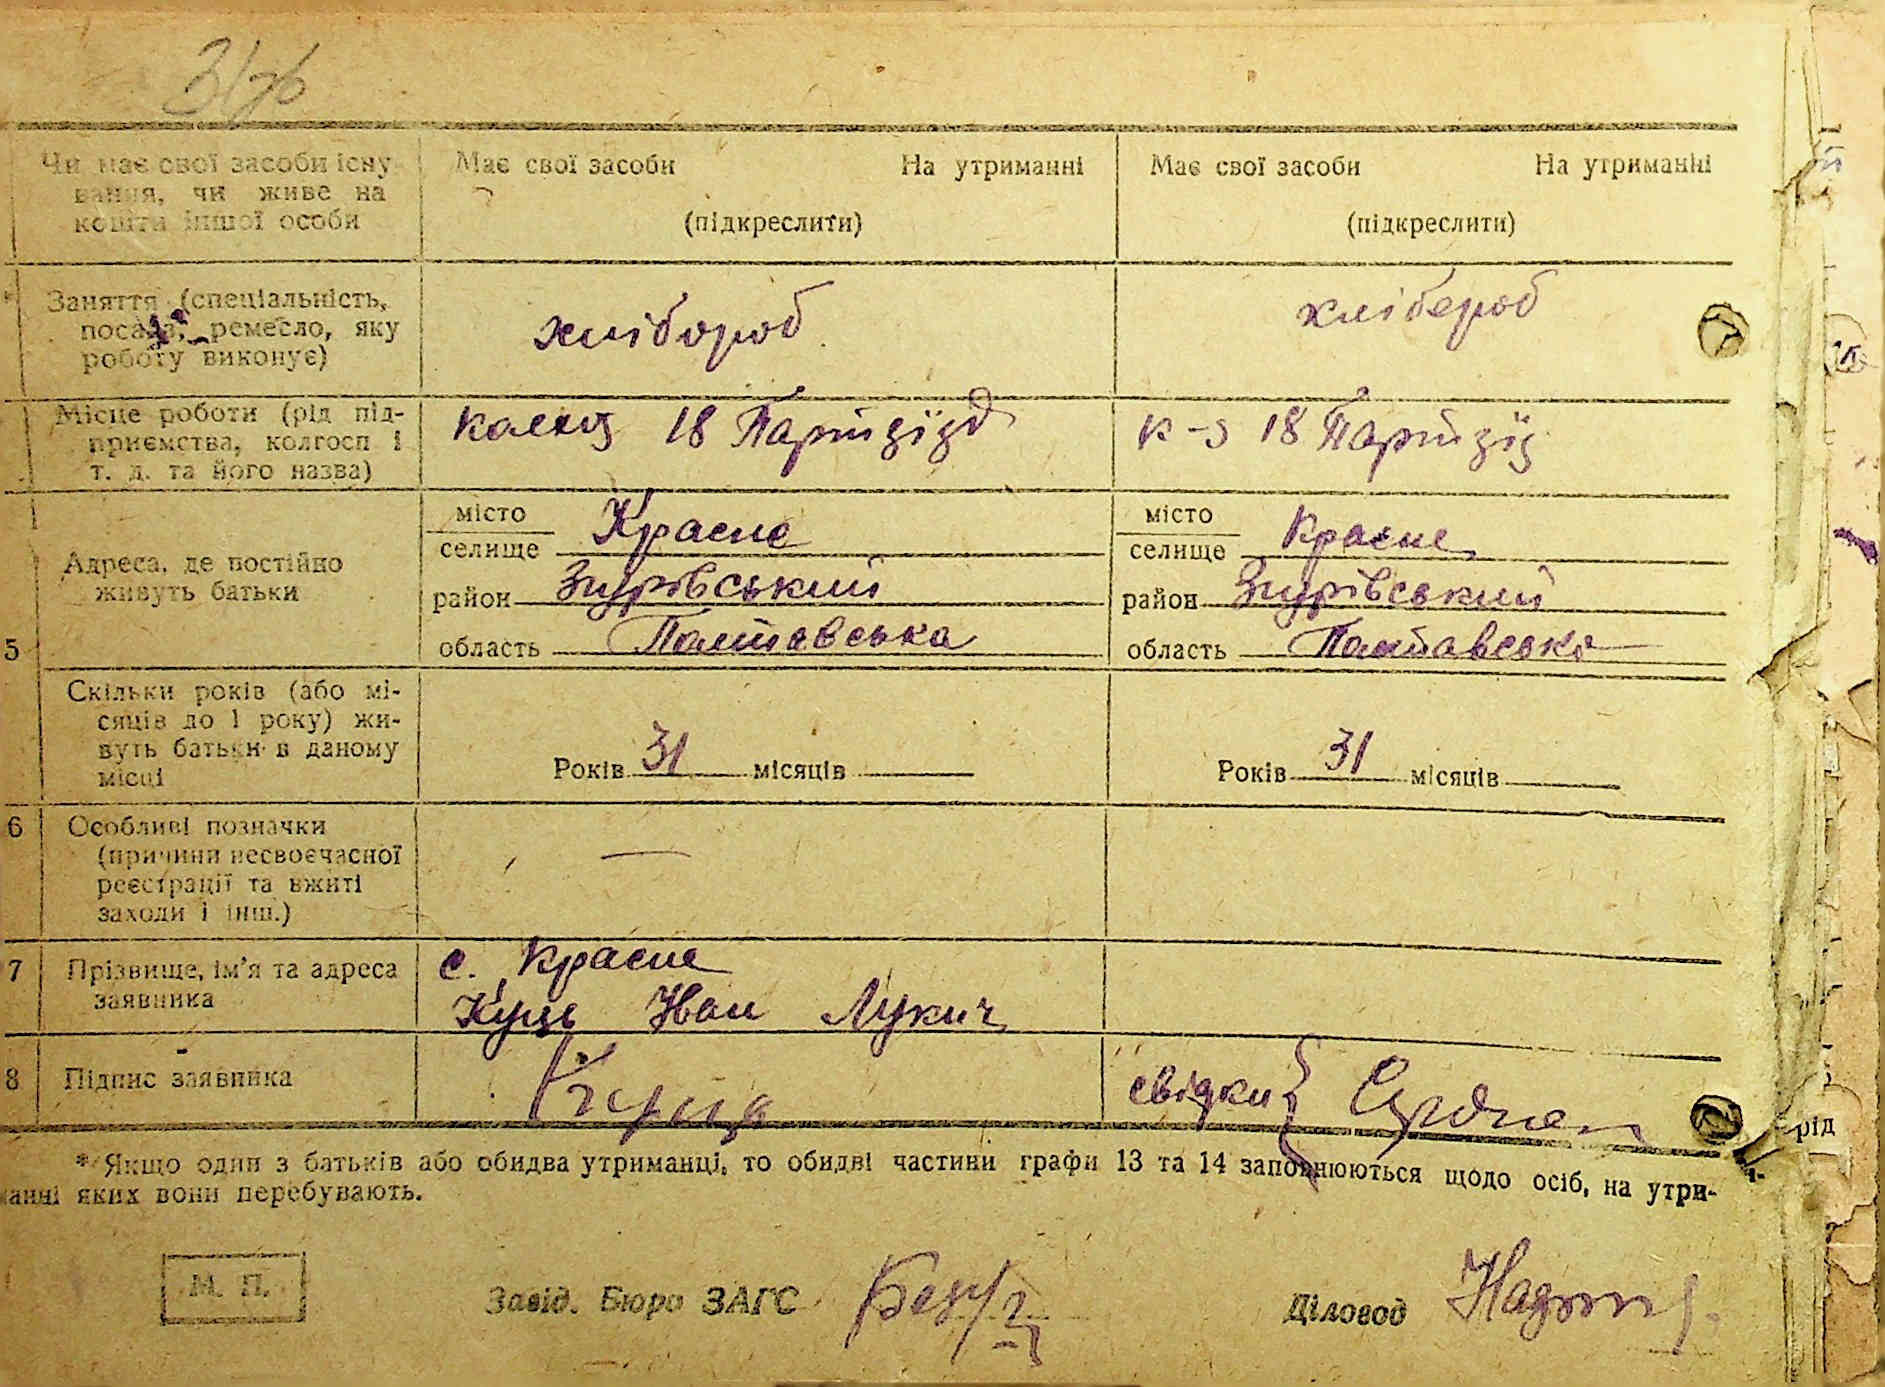 Чи має свої засоби існу
вання, чи живе на
кошти іншої особи
Має свої засоби На утриманні
(підкреслити)
Має свої засоби На утриманні
(підкреслити)
Заняття (спеціальність,
посада, ремесло, яку
роботу виконує)
хлібороб
хлібероб
Місце роботи (рід під-
приємства, колгосп і
т. д. та його назва)
18 Партзїзд
к-з 18 Партзїз
5
Адреса, де постійно
живуть батьки
місто
селище Красне
район Згурівський
область Полтавська
місто
селище Красне
район Згурівський
область Полтавська
Скільки років (або мі-
сяців до 1 року) жи-
вуть батьки в даному
місці
Років 31 місяців
Років 31 місяців
6 Особливі позначки
(причини несвоєчасної
реєстрації та вжиті
заходи і інш.)
—
7 Прізвище, ім'я та адреса
заявника
с. Красне
Куць Іван Лукич
8 Підпис заявника
свідки
рід
* Якщо один з батьків або обидва утриманці, то обидві частини графи 13 та 14 заповнюються щодо осіб, на утри-
анні яких вони перебувають.
М. П.
Завід. Бюро ЗАГС
Діловод